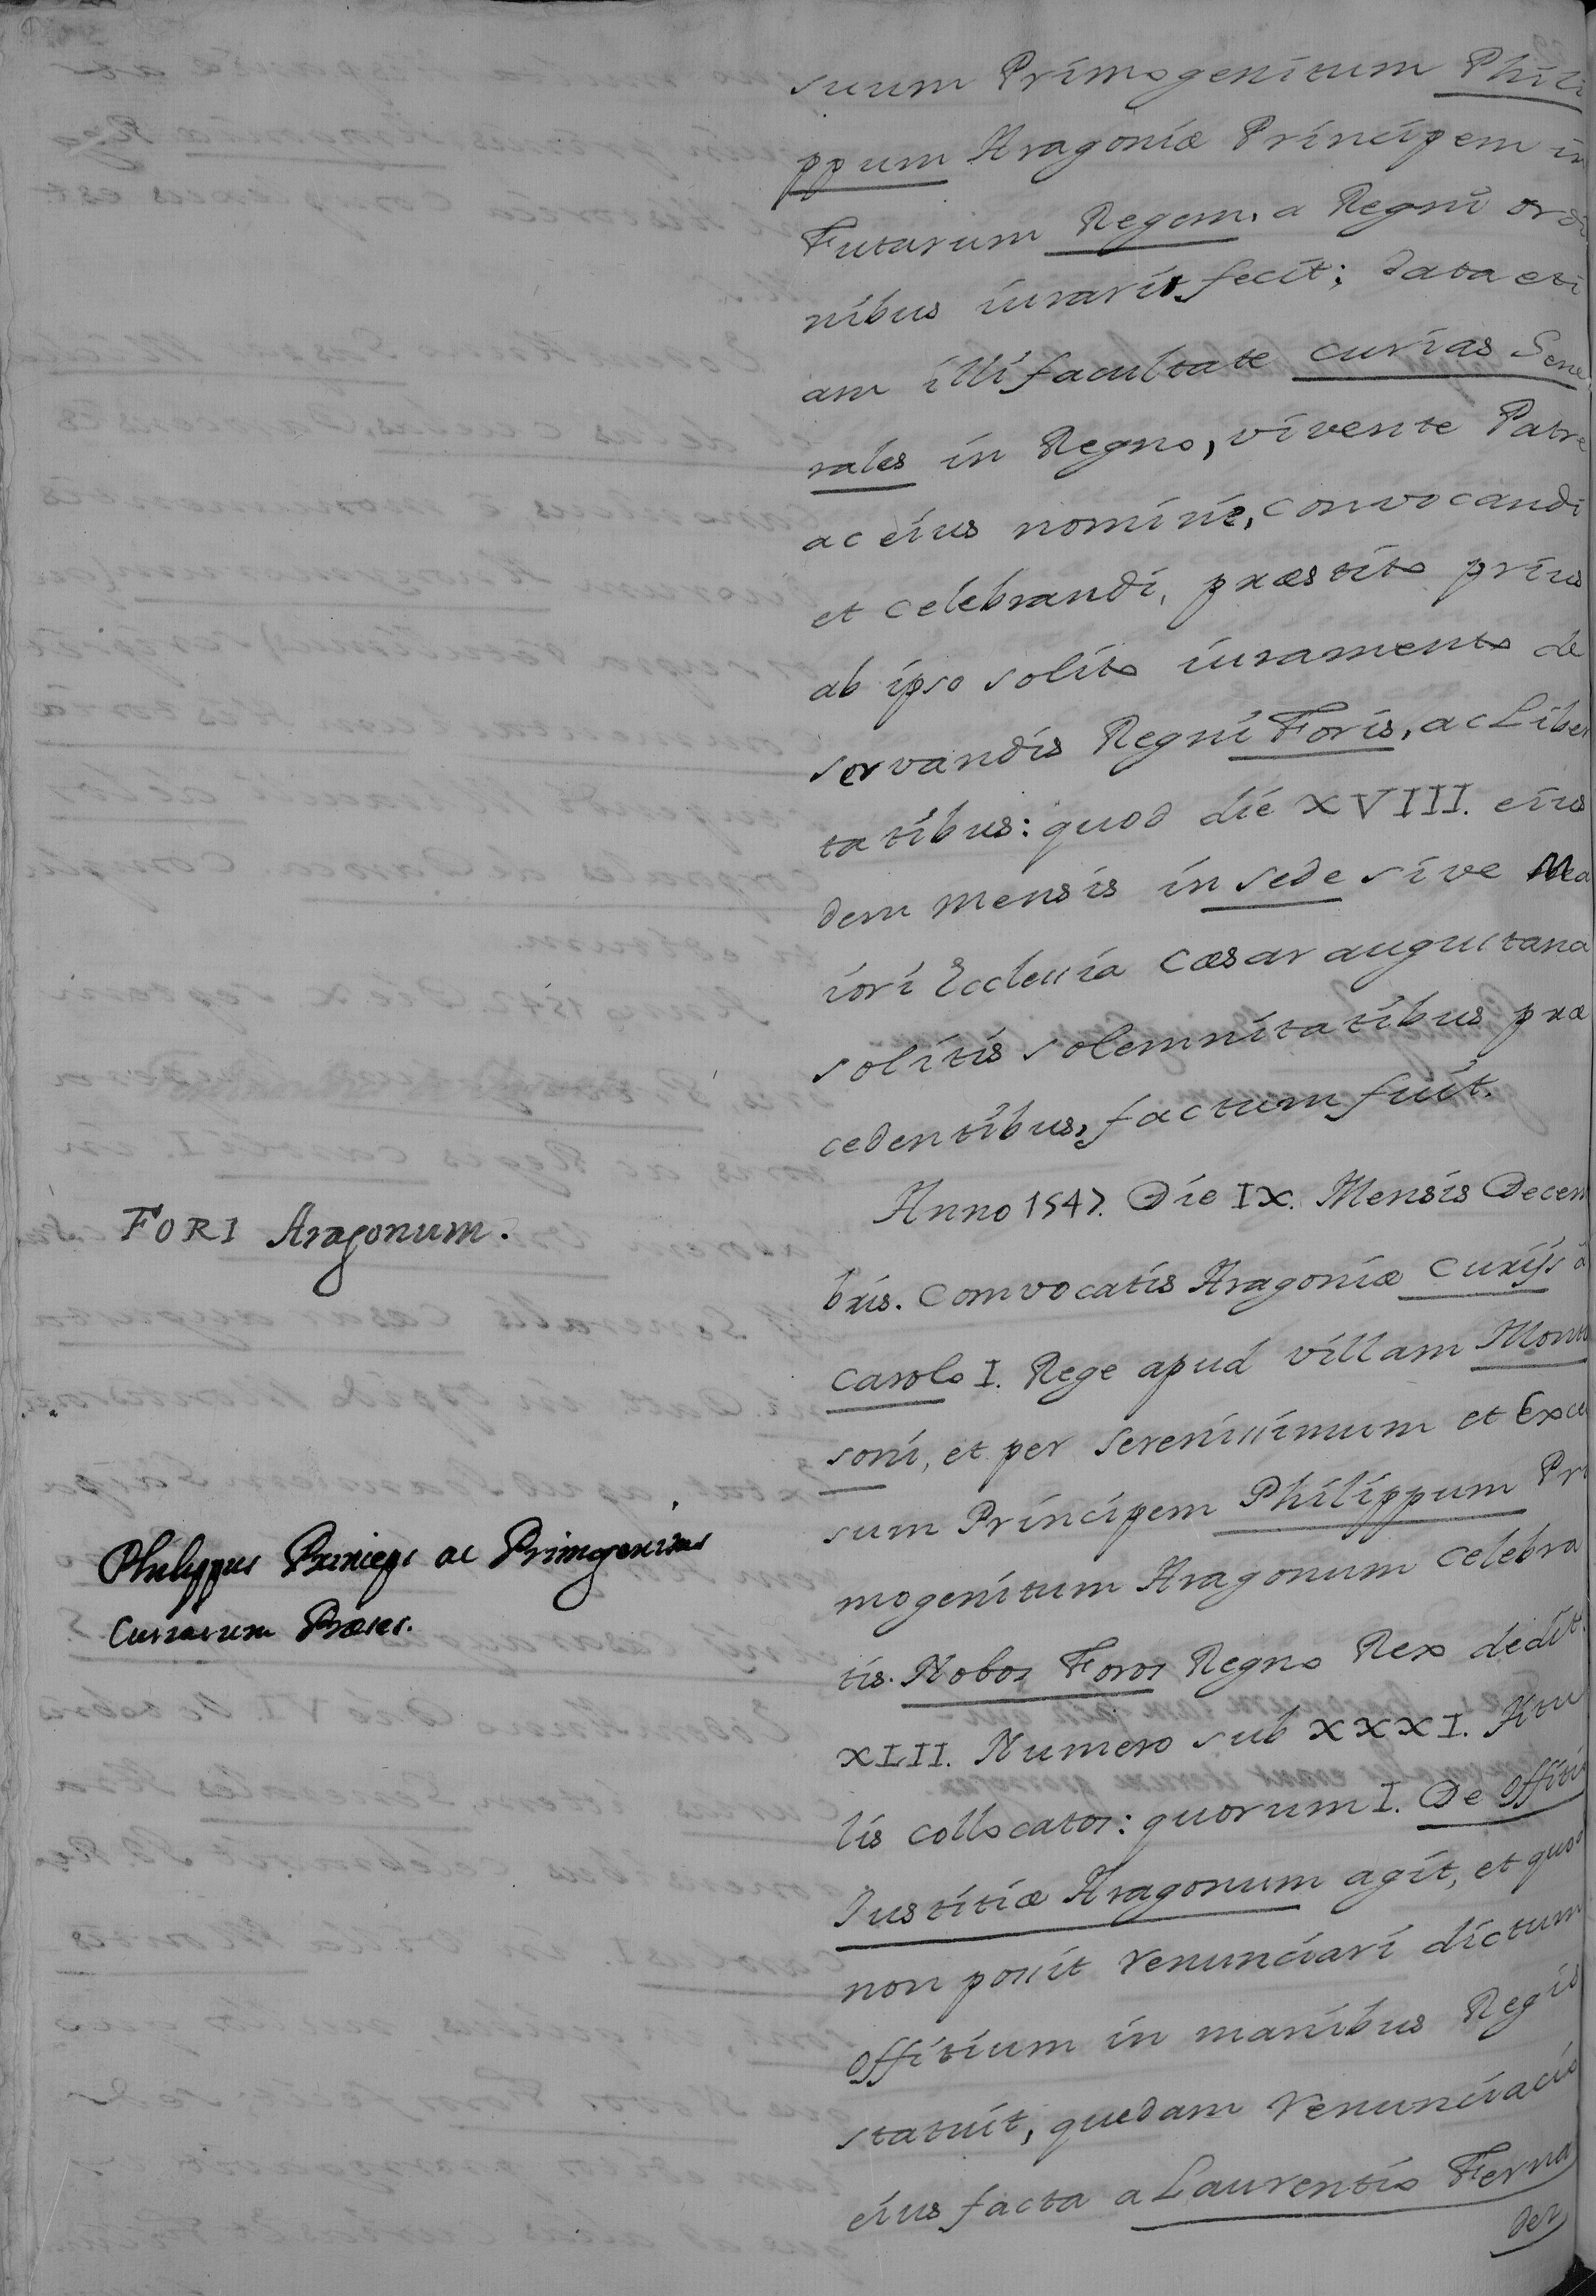 suum Primogenitum Phili
ppum Aragoniæ Principem in
Futurum Regem, a Regni ordi
nibus iurarit fecit; data eti
am illi facultate curias Gene
rales in Regno, vivente Patre
ac eius nomine, convocandi
et celebrandi, præstito prius
ab ipso solito iuramento de
servandis Regni Foris, ac Liber
tatibus: quod die XVIII. eius
dem mensis in sede sive Ma
iori Ecclessia Cæsaraugustana
solitis solemnitatibus præ
cedentibus, factum fuit.
FORI Aragonum.
Anno 1547. Die IX. Mensis Decem
bris. Convocatis Aragoniæ Curijs à
Carolo I. Rege apud villam Monti
soni, et per serenissimum et Excel
sum Principem Philippum Pri
mogenitum Aragonum celebra
Philippus Princips ac Primogenitus
Curiarum Præses.
tis. Nobos Foros Regno Rex dedit.
XLII. Numero sub XXXI. titu
lis collocatos: quorum I. De offitio
Justitiæ Aragonum agit, et quod
non possit renunciari dictum
offitium in manibus Regis
statuit, quedam renunciacio
eius facta a Laurentio Ferna
dez